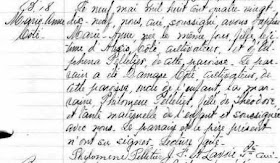 B.18.
Le neuf mai mil huit cent quatre vingt
Marie Anne dix-neuf, nous, curé, soussigné, avons baptisé
Coté. Marie Anne née le même jour, fille légi-
time d'Alfred Coté, cultivateur, et d'Al-
phonsine Pelletier, de cette paroisse. Le par-
rain a été Damase Coté, cultivateur, de
cette paroisse, oncle de l'enfant, la mar-
raine Philomène Pelletier, fille de Théodore
et tante maternelle de l'enfant, et soussignée
avec nous. Le parrain et le père présent
n'ont su signer. Lecture faite.
Philomène Pelletier